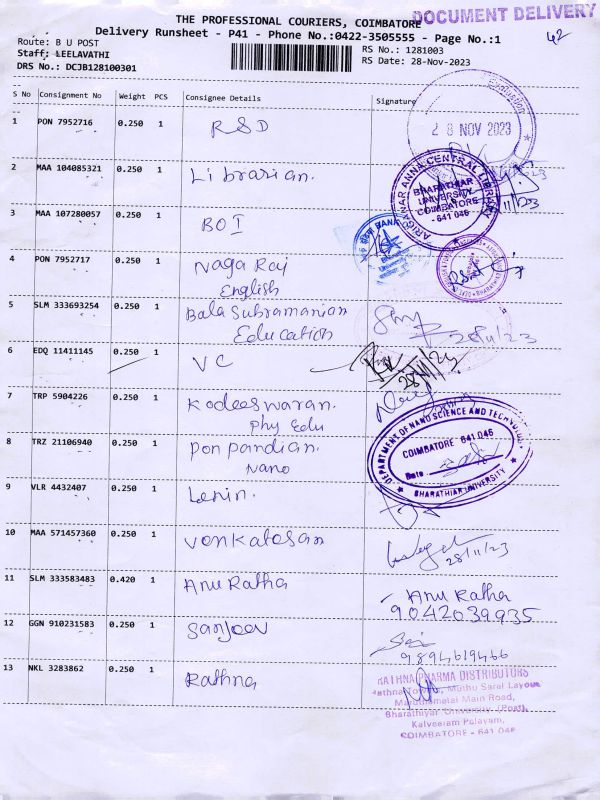 THE PROFESSIONAL COURIERS, COIMBATORE
DOCUMENT DELIVERY
Delivery Runsheet - P41 - Phone No.:0422-3505555 - Page No.:1
42
Route: B U POST
RS No.: 1281003
Staff: LEELAVATHI
RS Date: 28-Nov-2023
DRS No.: DCJB128100301
S No Consignment No Weight PCS Consignee Details Signature
1 PON 7952716 0.250 1 RSD
28 NOV 2023
2 MAA 104085321 0.250 1 Librarian.
ARIGNAR ANNA CENTRAL LIBRARY
BHARATHIAR
UNIVERSITY
COIMBATORE
- 641 046
3 MAA 107280057 0.250 1 BOI
4 PON 7952717 0.250 1 Naga Raj
English
5 SLM 333693254 0.250 1 Bala Subramanian
Education
28/11/23
6 EDQ 11411145 0.250 1 VC
28/11/23
7 TRP 5904226 0.250 1 Kodeeswaran.
Phy Edu
8 TRZ 21106940 0.250 1 Ponpandian.
Nano
DEPARTMENT OF NANO SCIENCE AND TECHNOLOGY
COIMBATORE 641 046
Date
BHARATHIAR UNIVERSITY
9 VLR 4432407 0.250 1 Lenin.
10 MAA 571457360 0.250 1 Venkatesan
28/11/23
11 SLM 333583483 0.420 1 Anu Ratha
Anu Ratha
9042039935
12 GGN 910231583 0.250 1 Sanjeev
9894619466
13 NKL 3283862 0.250 1 Rathna
RATHNA PHARMA DISTRIBUTORS
Rathna Tower, Muthu Saral Layout
Maruthamalai Main Road,
Bharathiyar University (Post),
Kalveeram Palayam,
COIMBATORE - 641 046